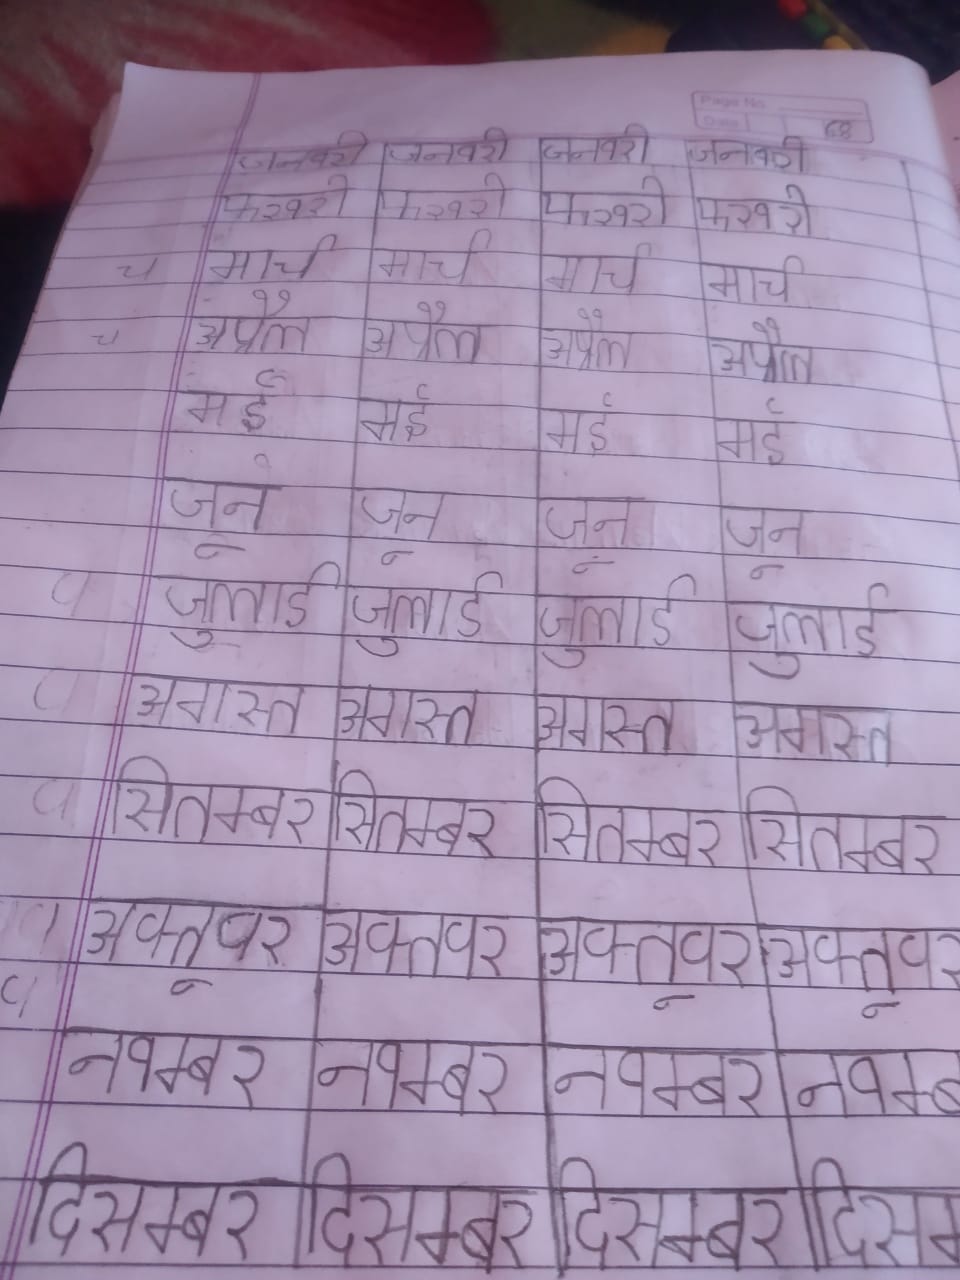 Page No.
Date 68
जनवरी जनवरी जनवरी जनवरी
फरवरी फरवरी फरवरी फरवरी
च मार्च मार्च मार्च मार्च
च अप्रैल अप्रैल अप्रैल अप्रैल
मई मई मई मई
जून जून जून जून
जुलाई जुलाई जुलाई जुलाई
अगस्त अगस्त अगस्त अगस्त
सितम्बर सितम्बर सितम्बर सितम्बर
अक्तूवर अक्तवर अक्तूवर अक्तूवर
नवम्बर नवम्बर नवम्बर नवम्ब
दिसम्बर दिसम्बर दिसम्बर दिसम